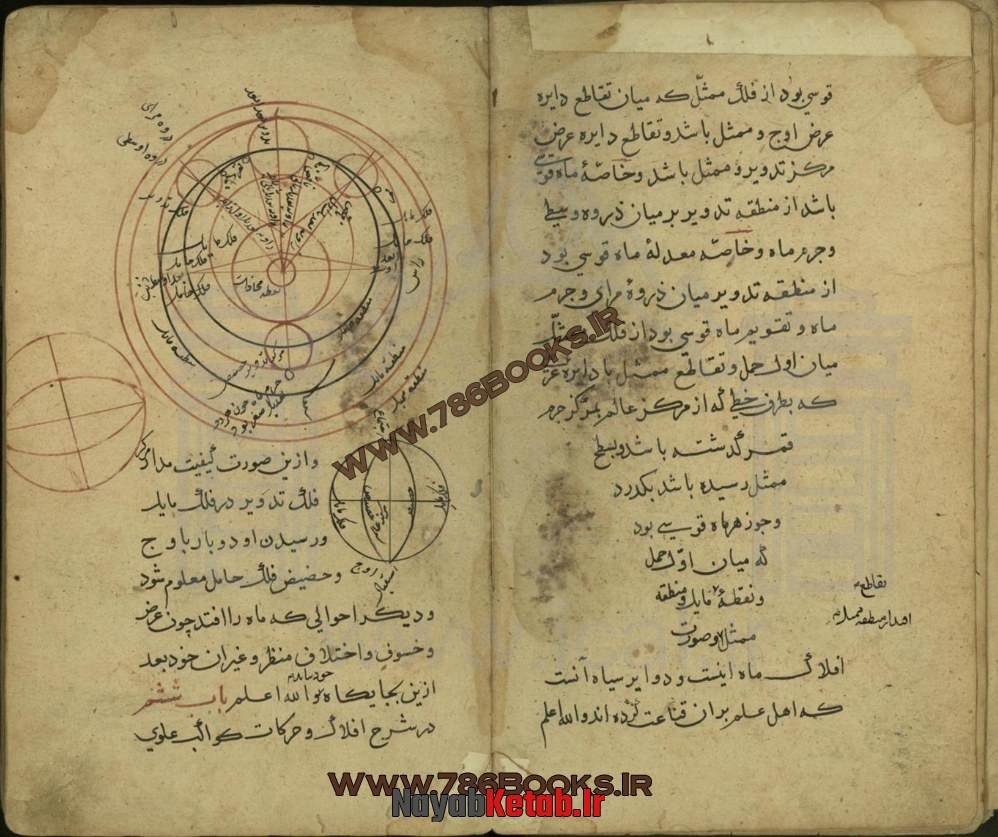 قوسی بود از فلک ممثّل که میان تقاطع دایره
عرض اوج و ممثل باشد و تقاطع دایرهٔ عرض
مرکز تدویر و ممثل باشد و خاصّهٔ ماه قوسی
باشد از منطقهٔ تدویر بر میان ذروهٔ وسطی
و جرم ماه و خاصّه معدلهٔ ماه قوسی بود
از منطقه تدویر میان ذروهٔ مرای و جرم
ماه و تقویم ماه قوسی بود از فلک ممثّل
میان اول حمل و تقاطع ممثل با دایره عرض
که بطرف خطی که از مرکز عالم بمرکز جرم
قمر گذشته باشد و بسطح
ممثل رسیده باشد بگذرد
و جوزهر ماه قوسی بود
که میان اوّل حمل
و نقطهٔ مایل و منطقه
ممثل و صورت
افلاک ماه اینست و دوایر سیاه آنست
که اهل علم بران قناعت کرده اند والله اعلم
تقاطع
ذروه مرای
ذروه اوسطی
فلک تدویر
فلک حامل
نقطه محاذات
منطقه حامل
منطقه مایل
منطقه مایل
و ازین صورت کیفیت مدار مرکز
فلک تدویر در فلک مایل
و رسیدن او دو بار باوج
و حضیض فلک حامل معلوم شود
و دیگر احوالی که ماه را افتد چون عرض
و خسوف و اختلاف منظر و غیر آن خود بعد
ازین بجایگاه خود بیاید والله اعلم باب ششم
در شرح افلاک و حرکات کواکب علوی
Www.786Books.IR
Www.786Books.IR
NayabKetab.Ir